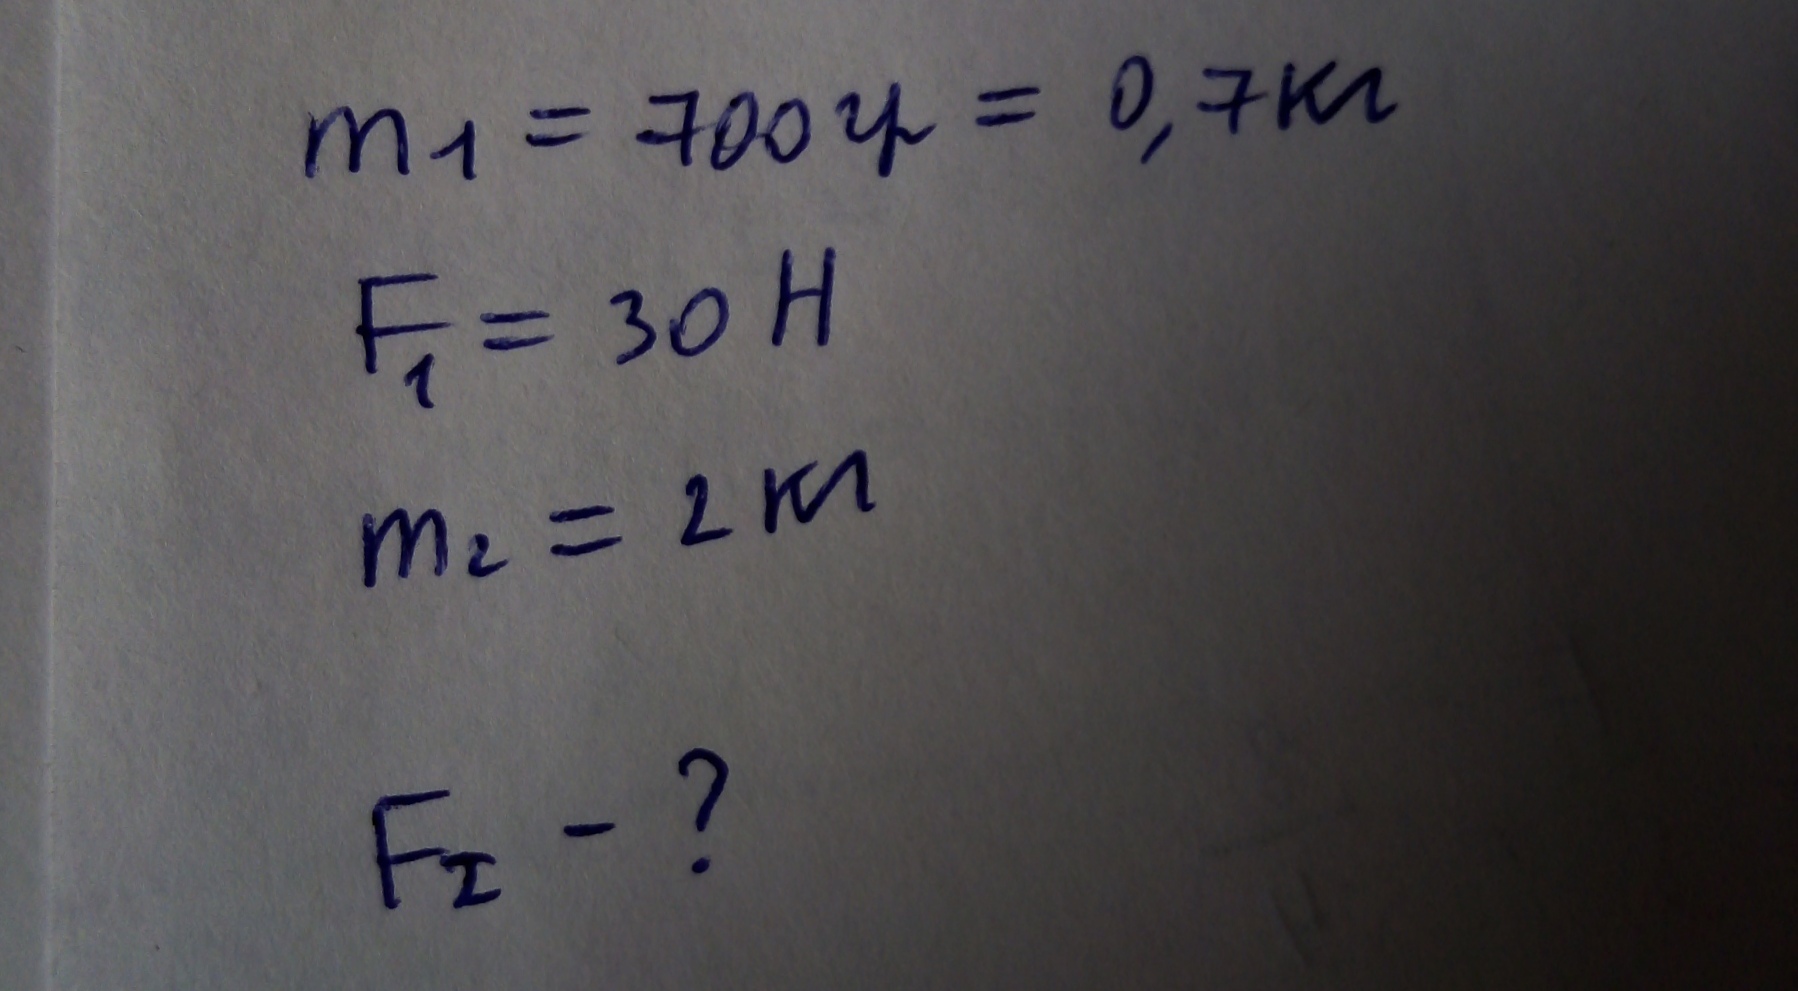 m1 = 700гр = 0,7кг
F1 = 30 Н
m2 = 2 кг
F2 - ?